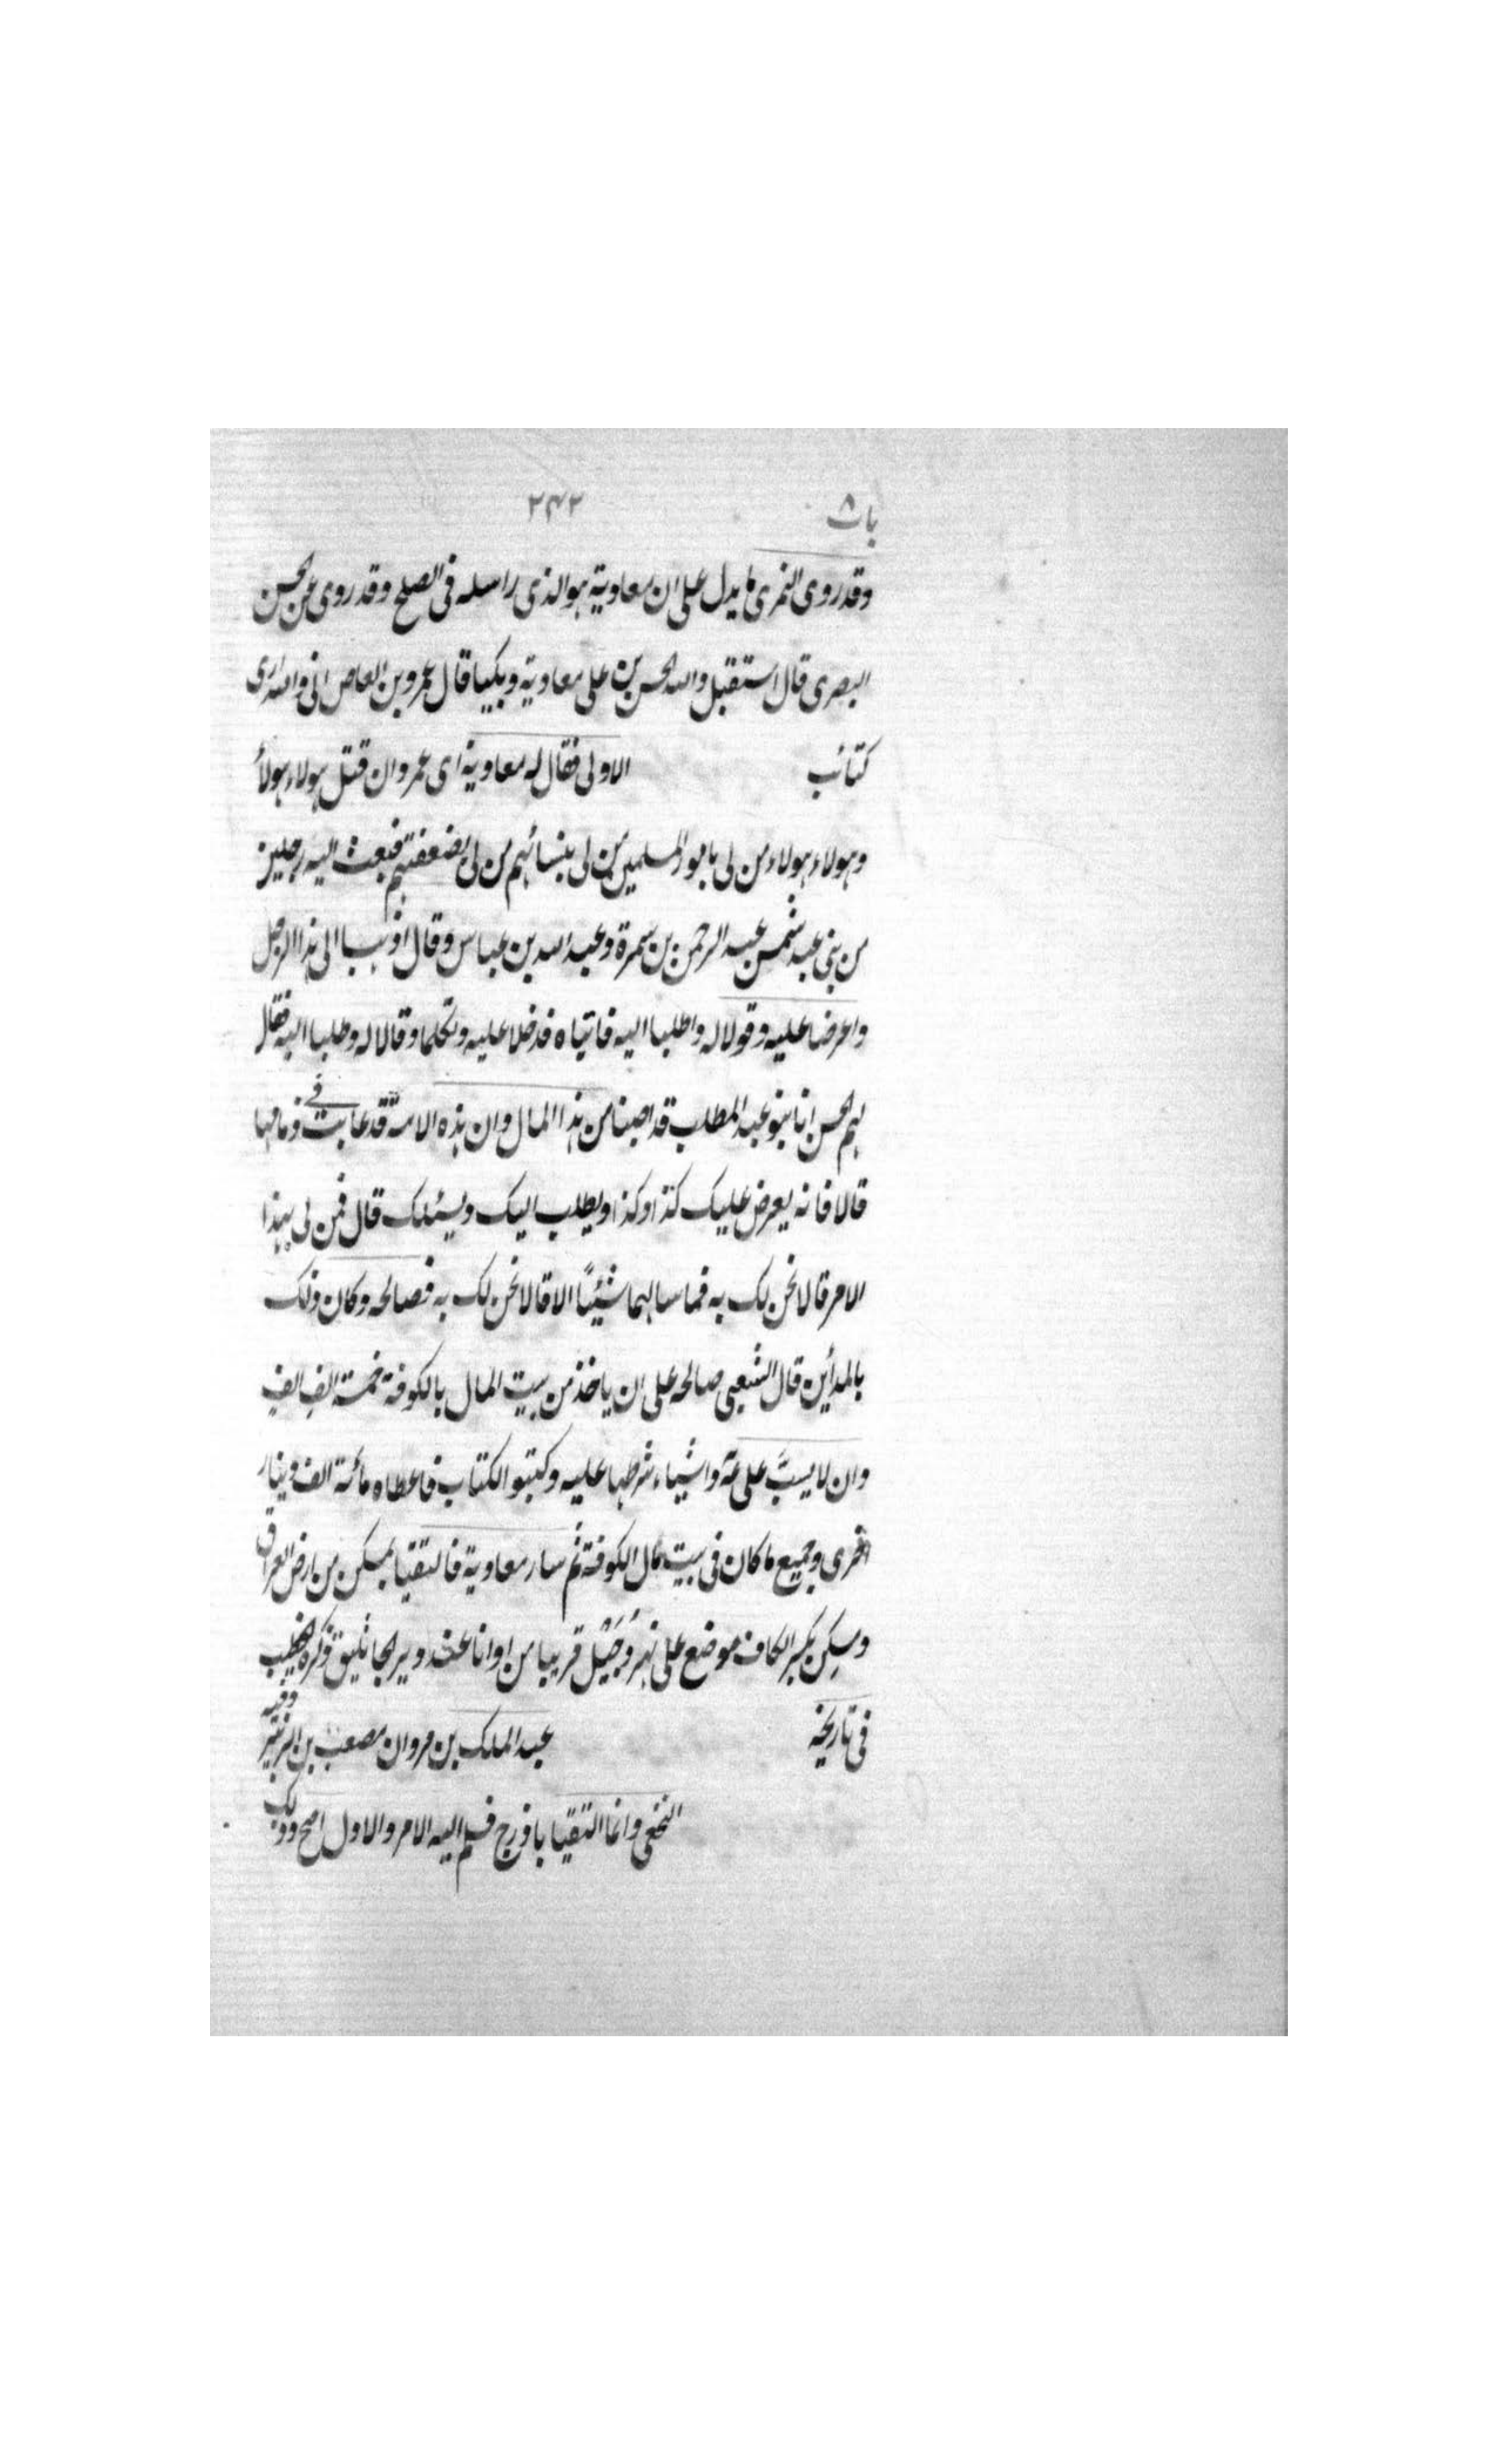 باب ٨ ٢٤٢
وقد روى النمرى ما يدل على ان معاوية هو الذى راسله فى الصلح وقد روى عن الحسن
البصرى قال استقبل والله الحسن بن على معاوية وبكيا قال عمرو بن العاص انى والله ارى
كتائب الاولى فقال له معاوية اى عمرو ان قتل هولاء هولاء
وهولاء هولاء من لى بامور المسلمين من لى بنسائهم من لى بضعفتهم فبعث اليه رجلين
من بنى عبد شمس عبد الرحمن بن سمرة وعبد الله بن عباس وقال اذهبا الى هذا الرجل
واعرضا عليه وقولا له واطلبا اليه فاتياه فدخلا عليه وتكلما وقالا له وطلبا اليه فقال
لهم الحسن انا بنو عبد المطلب قد اصبنا من هذا المال وان هذه الامة قد عاثت فى دمائها
قالا فانه يعرض عليك كذا وكذا ويطلب اليك ويسئلك قال فمن لى بهذا
الامر قالا نحن لك به فما سالهما شيئًا الا قالا نحن لك به فصالحه وكان ذلك
بالمدأين قال الشعبى صالحه على ان ياخذ من بيت المال بالكوفة خمسة الف الف
وان لا يسبَّ على عة واشياء شرطها عليه وكتبو الكتاب فاعطاه مائة الف دينار
اخرى وجميع ما كان فى بيت مال الكوفة ثم سار معاوية فالتقيا بمسكن من ارض العراق
ومسكِن بكسر الكاف موضع على نهر دُجَيْل قريبا من اوانا عند دير الجاثليق ذكره الخطيب
فى تاريخه وفيه عبد الملك بن مروان مصعب بن الزبير
النخعى وانما التقيا باذرح فسلم اليه الامر والاول اصح وذلك